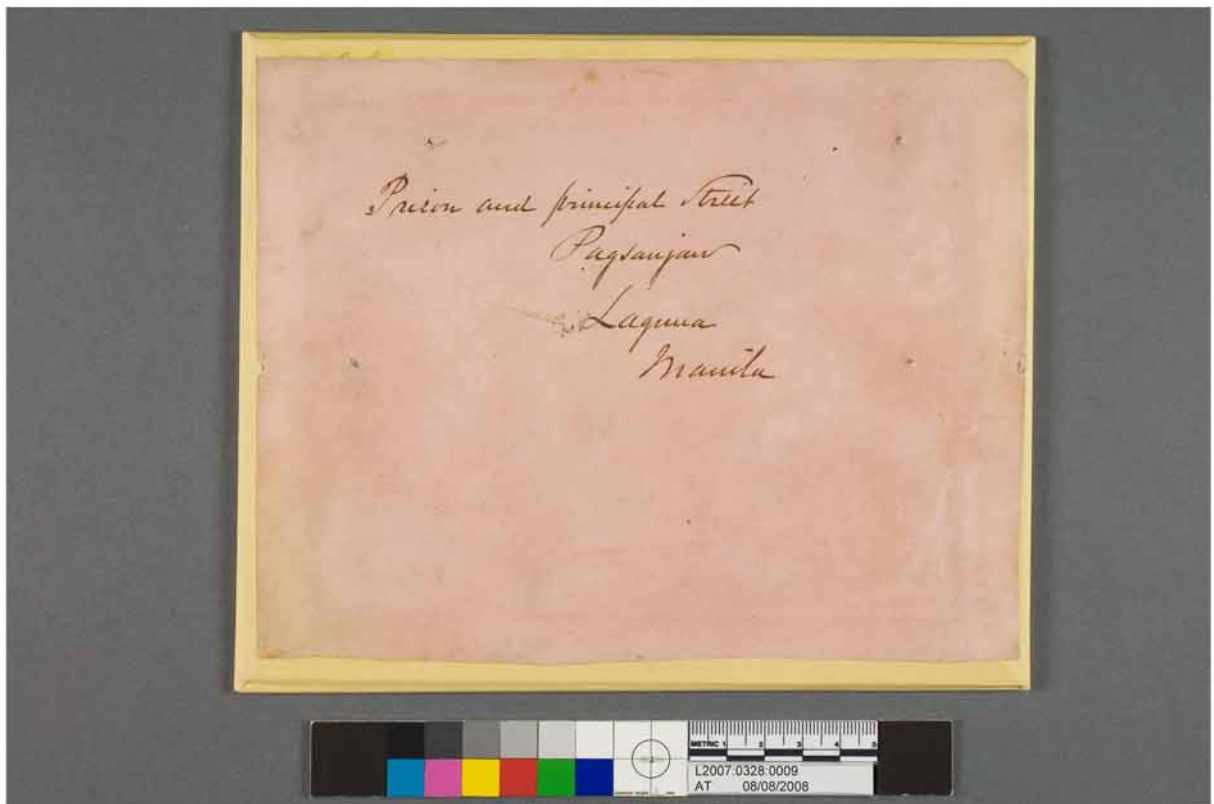 Prison and principal Street
Pagsanjan
Laguna
Manila
METRIC 1 2 3 4 5
L2007:0328:0009
AT 08/08/2008